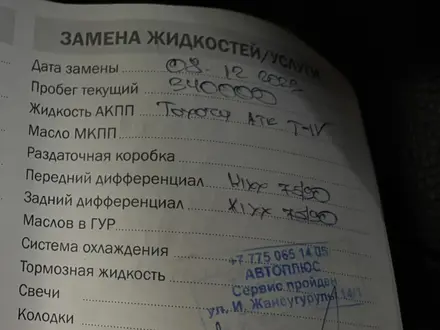 ЗАМЕНА ЖИДКОСТЕЙ/УСЛУГИ
Дата замены 09 12
Пробег текущий 340000
Жидкость АКПП Toyota ATF T-IV
Масло МКПП
Раздаточная коробка
Передний дифференциал 75/90
Задний дифференциал 75/90
Маслов в ГУР
Система охлаждения
Тормозная жидкость
Свечи
Колодки
+7 775 065 14 05
АВТОПЛЮС
Сервис пройден
ул. И. Жансугурулы